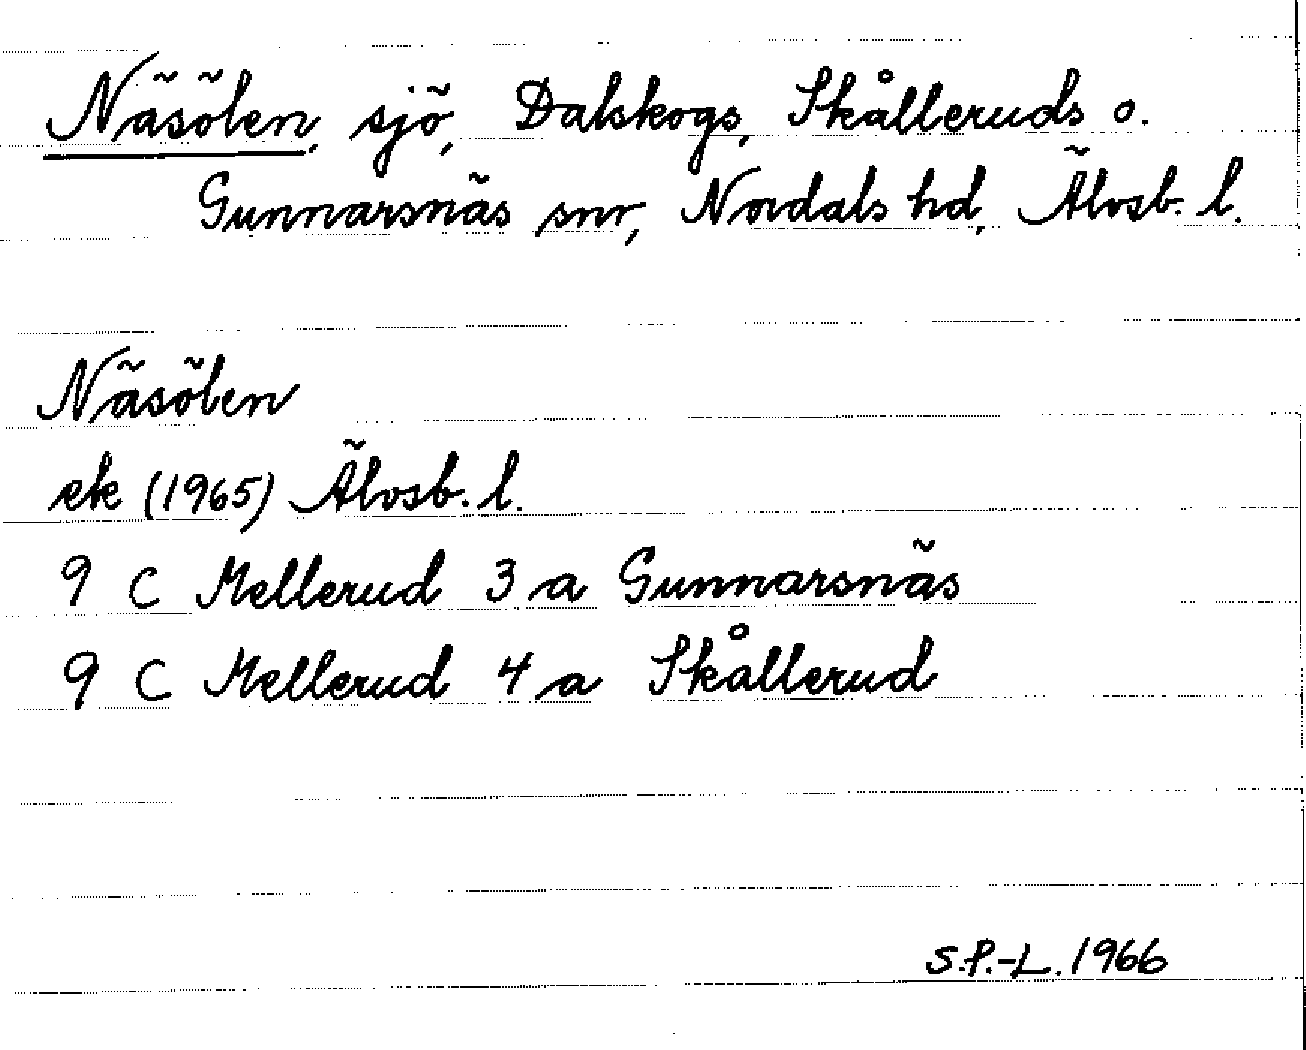 Näsölen, sjö, Dalskogs, Skålleruds o.
Gunnarsnäs snr, Nordals hd, Älvsb. l.
Näsölen
ek (1965) Älvsb. l.
9 C Mellerud 3 a Gunnarsnäs
9 C Mellerud 4 a Skållerud
S.P.-L. 1966